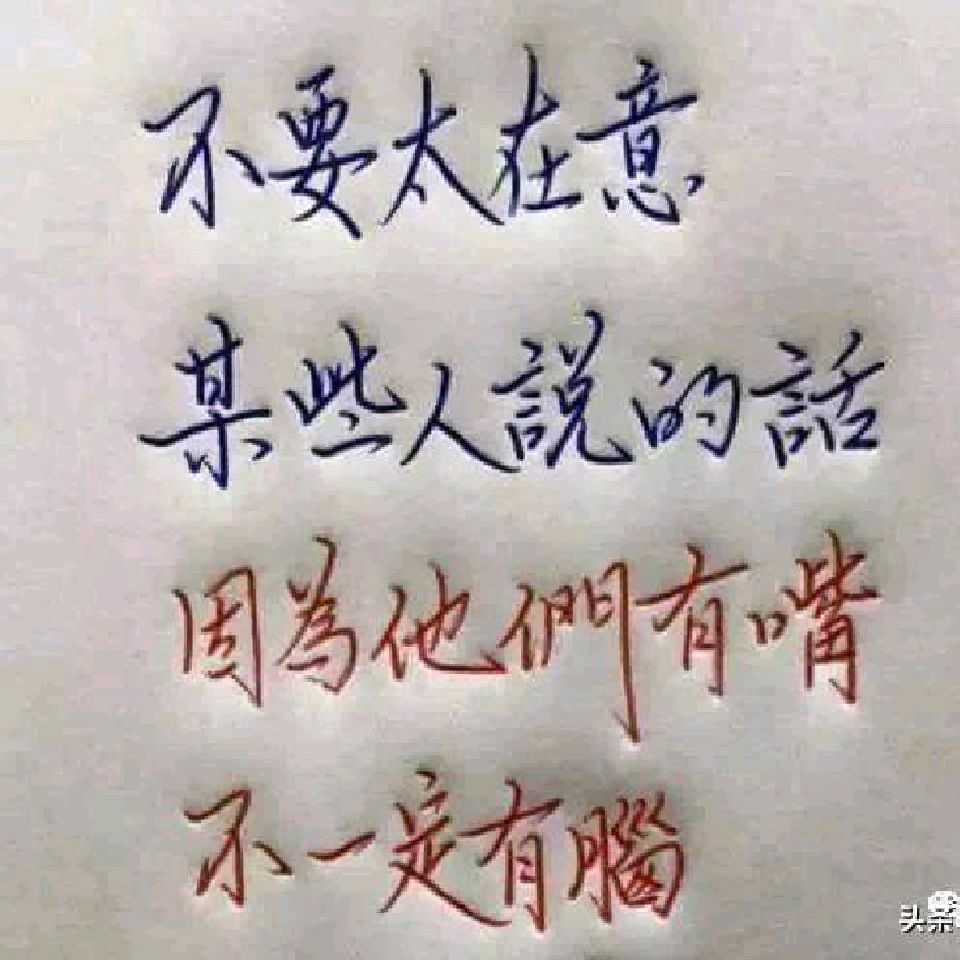 不要太在意
某些人説的話
因為他們有嘴
不一定有腦
头条